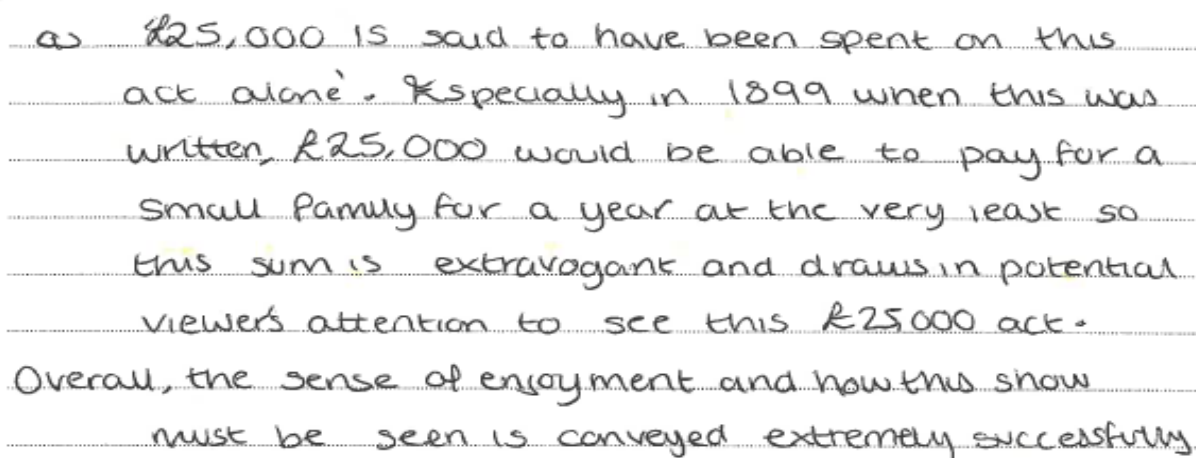 as £25,000 is said to have been spent on this
act alone'. Especially in 1899 when this was
written, £25,000 would be able to pay for a
small family for a year at the very least so
this sum is extravagant and draws in potential
viewer's attention to see this £25000 act.
Overall, the sense of enjoyment and how this show
must be seen is conveyed extremely successfully